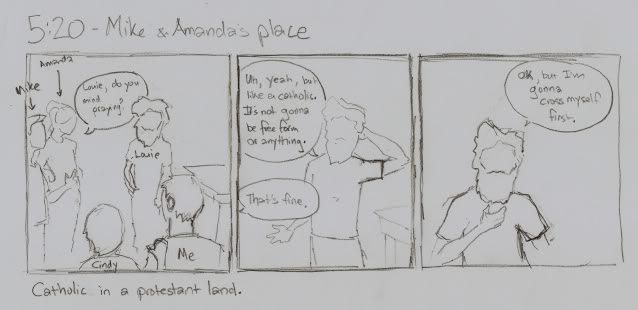 5:20 - Mike & Amanda's place
Amanda
Mike
Louie, do you
mind
praying?
Louie
Cindy
Me
Uh, yeah, but
like a catholic.
It's not gonna
be free form
or anything.
That's fine.
OK, but I'm
gonna
cross myself
first.
Catholic in a protestant land.